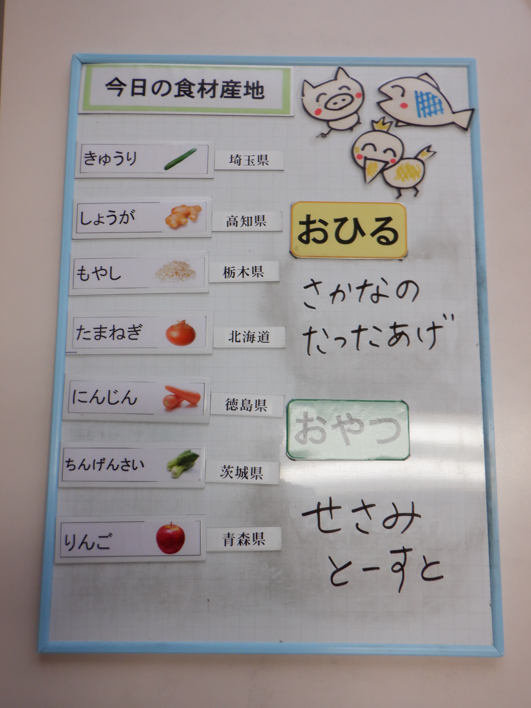 今日の食材産地
きゅうり 埼玉県
しょうが 高知県
もやし 栃木県
たまねぎ 北海道
にんじん 徳島県
ちんげんさい 茨城県
りんご 青森県
おひる
さかなの
たったあげ
おやつ
せさみ
とーすと